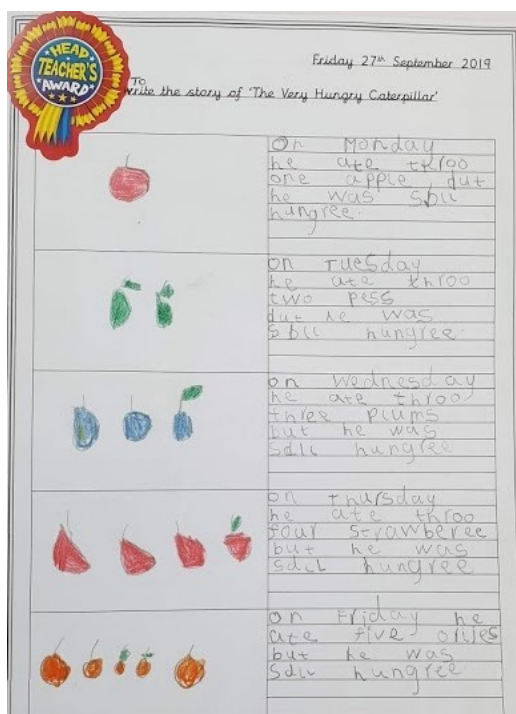 HEAD
TEACHER'S
AWARD
Friday 27th September 2019
To
write the story of 'The Very Hungry Caterpillar'
On Monday
he ate throo
one apple dut
he was sbll
hungree.
on Tuesday
he ate throo
two pess
dut he was
sbll hungree.
on Wednesday
he ate throo
three plums
but he was
sdll hungree
on thursday
he ate throo
four strawberee
but he was
sdll hungree
on Friday he
ate five orijes
but he was
sdll hungree.